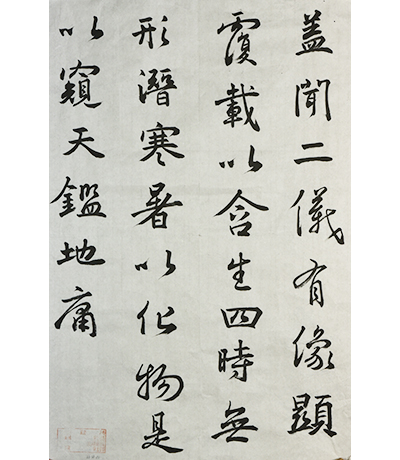 蓋聞二儀有像顯
覆載以含生四時無
形潛寒暑以化物是
以窺天鑑地庸